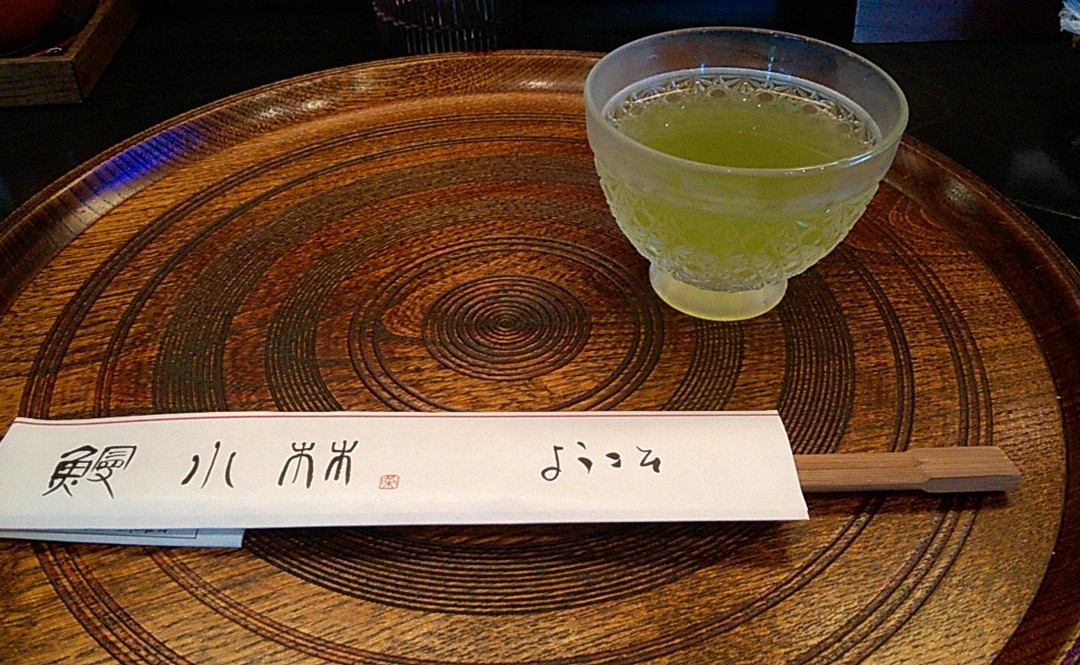 鰻 小林 ようこそ